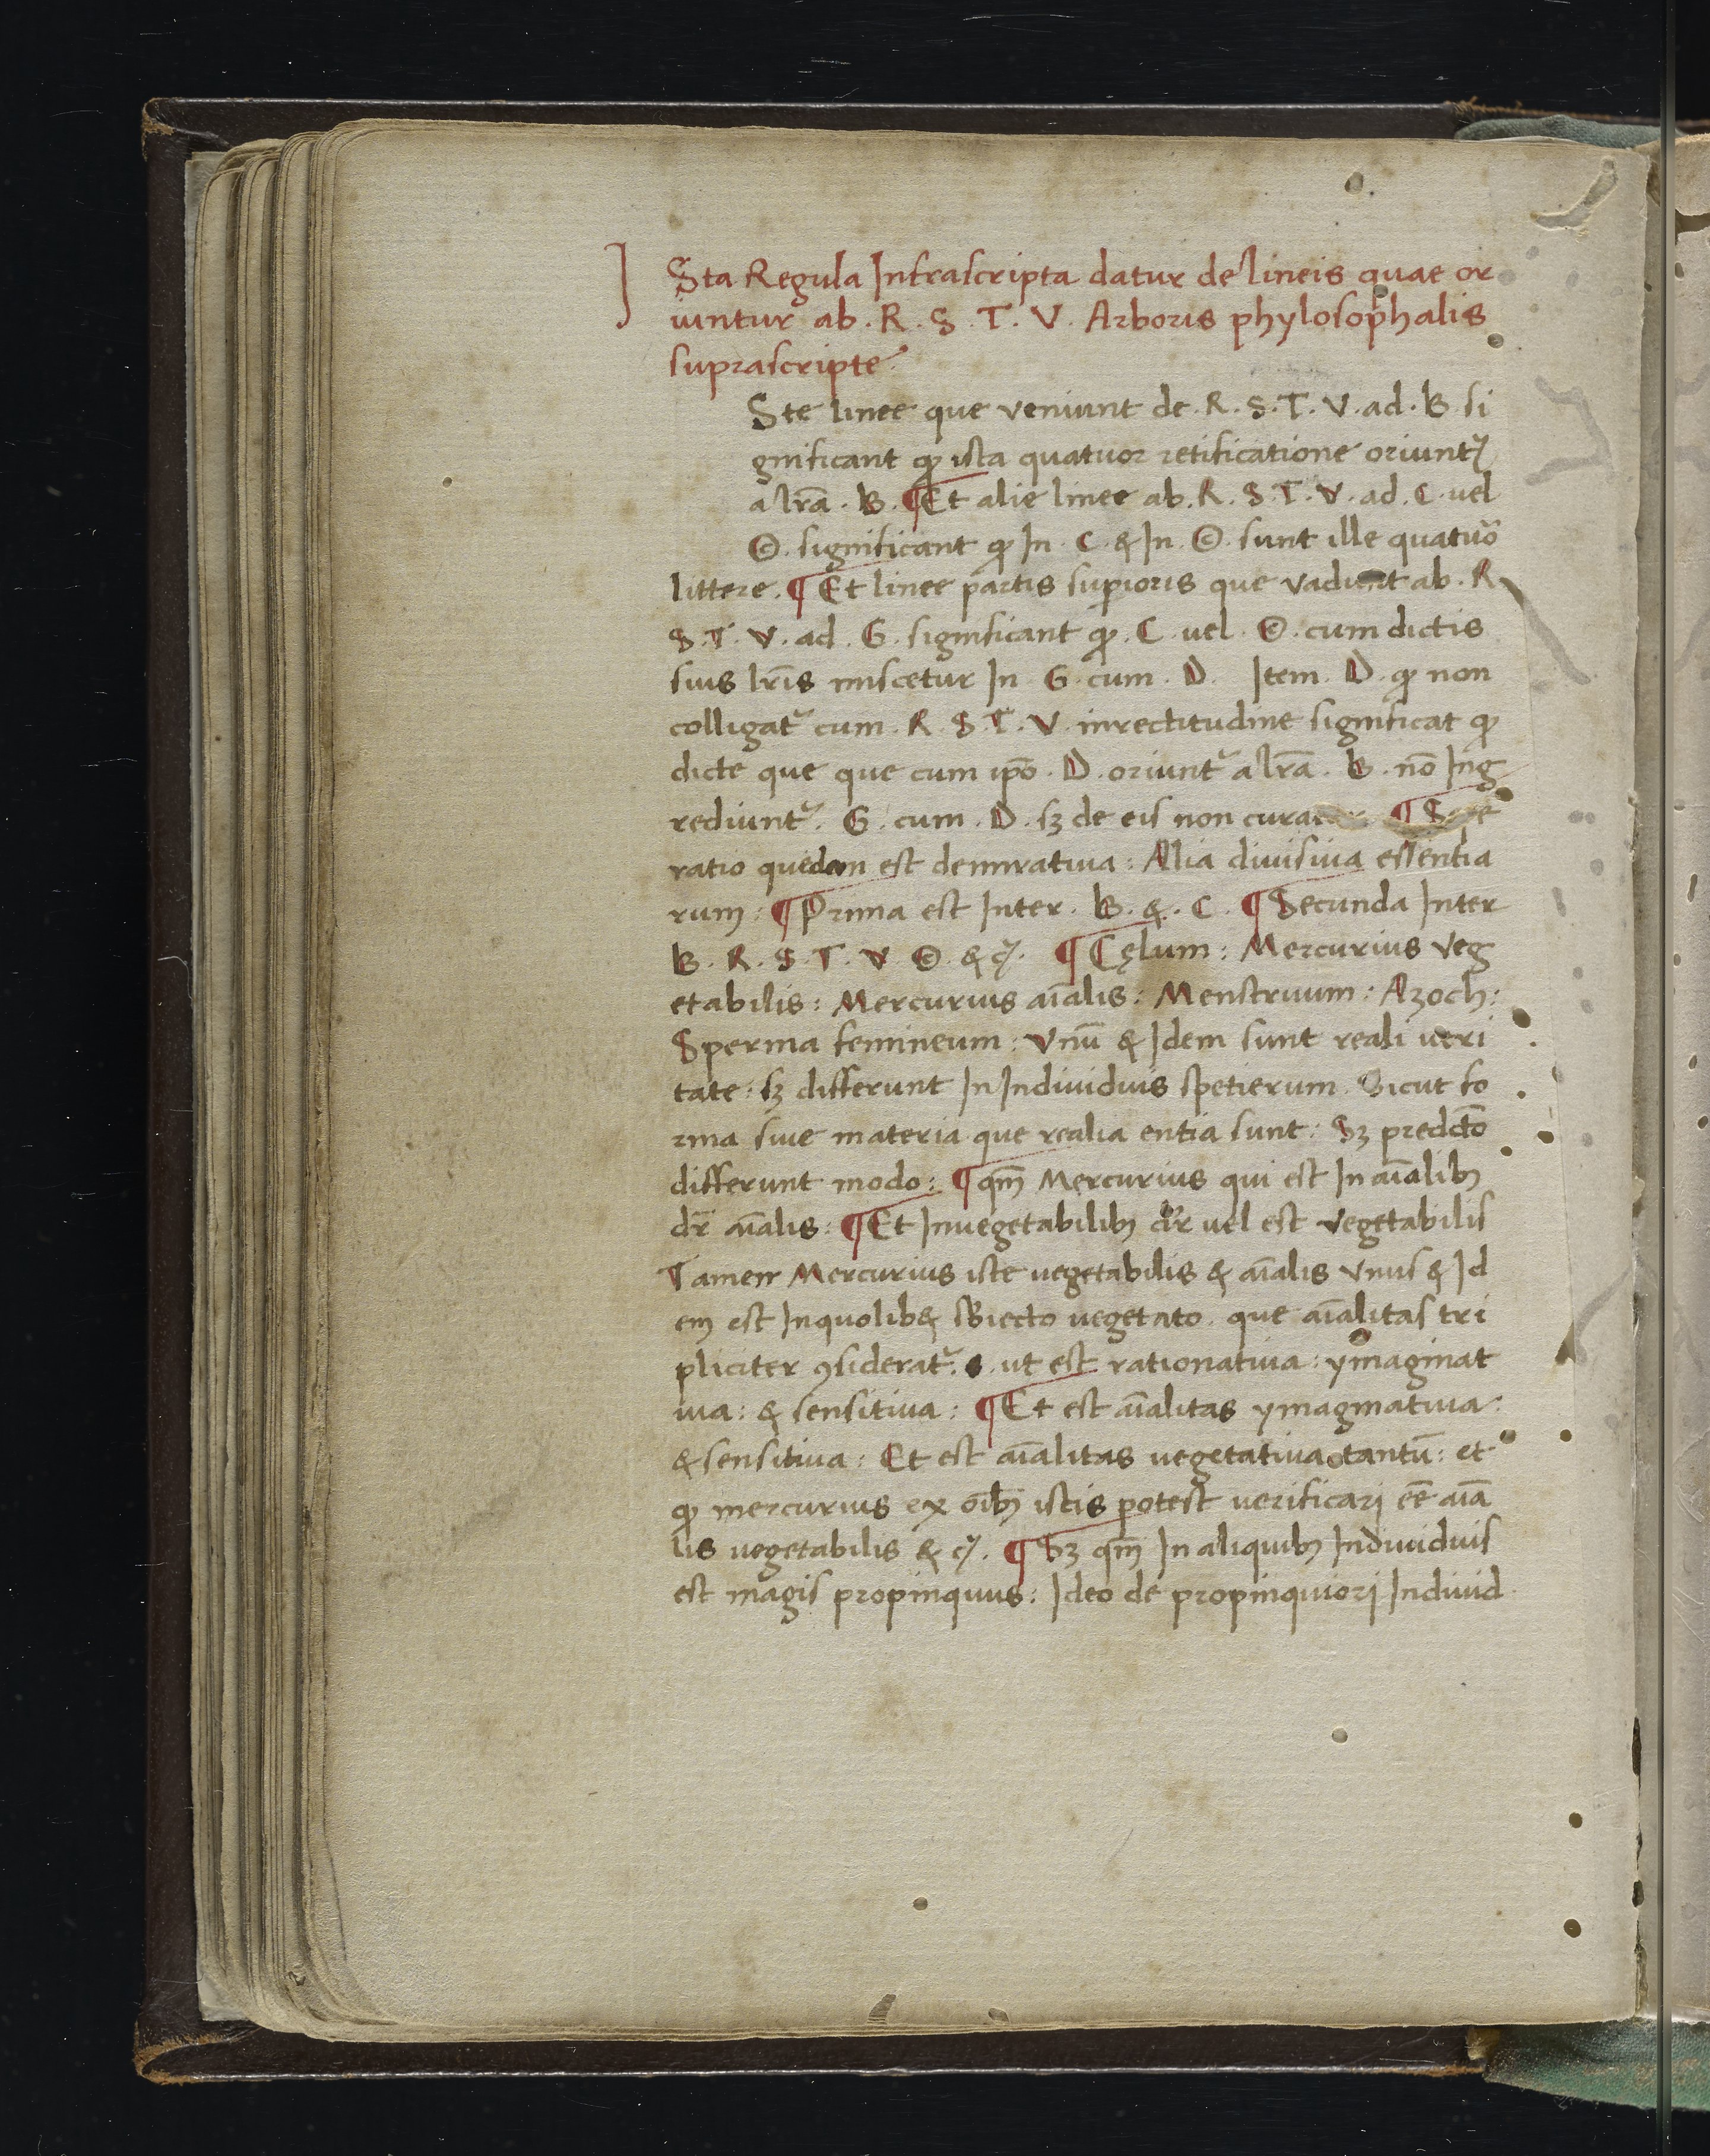 ISta Regula Infrascripta datur de lineis quae or
iuntur ab. R. S. T. V. Arboris phylosophalis
suprascripte.
Ste linee que veniunt de. R. S. T. V. ad. B. si
gnificant ꝙ ista quatuor retificatione oriuntꝭ
a lr̄a. B. ¶ Et alie linee ab. R. S. T. V. ad. C. vel
©. significant ꝙ In. C. & In. ©. sunt ille quatuo᷑
littere. ¶ Et linee partis suꝑioris que vadunt ab. R
S. T. V. ad. G. significant ꝙ. C. vel. ©. cum dictis
suis lr̄is miscetur In. G. cum. D. Item. D. ꝙ non
colligat᷑ cum. R. S. T. V. inrectitudine significat ꝙ
dicte que que cum ip̄o. D. oriunt᷑ a lr̄a. B. nō Ing
rediunt᷑. G. cum. D. sꝫ de eis non ¶
ratio quedam est denirativa: Alia divisiva essentia
rum: ¶ Prima est Inter. B. &. C. ¶ Secunda Inter
B. R. S. T. V. ©. & cꝭ. ¶ Cęlum: Mercurius veg
etabilis: Mercurius aīalis: Menstruum: Azoch:
Sperma femineum: Vnū & Idem sunt reali veri
tate: sꝫ differunt In Individuis spetierum. Sicut fo
rma sive materia que realia entia sunt: Sꝫ predc̄to
differunt modo: ¶ qm̄ Mercurius qui est In aīalibꝫ
dr̄ aīalis: ¶ Et Invegetabilibꝫ dr̄ vel est vegetabilis
Tamen Mercurius iste vegetabilis & aīalis vnus & Id
em est Inquolib& sBiecto vegetato. que aīalitas tri
pliciter ꝯsiderat᷑. ut est rationativa: ymaginat
iva: & sensitiva: ¶ Et est aīalitas ymaginativa:
& sensitiva: Et est aīalitas vegetativa tantū: et
ꝙ mercurius ex oībꝫ istis potest verificari eē aīa
lis vegetabilis & cꝭ. ¶ Sꝫ qm̄ In aliquibꝫ Individuis
est magis propinquus: Ideo de propinquiori Individ